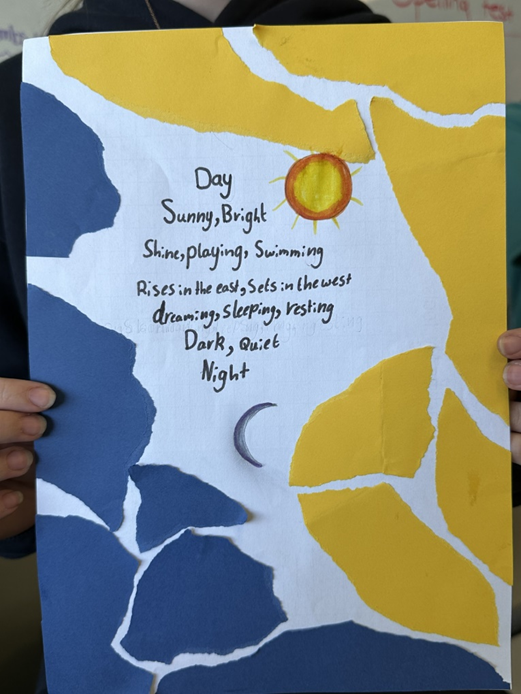 Spelling test
Day
Sunny, Bright
Shine, playing, Swimming
Rises in the east, Sets in the west
dreaming, Sleeping, resting
Dark, Quiet
Night